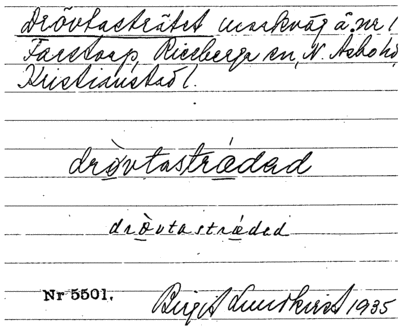 Drövtasträtet markväg å nr 1
Farstorp, Riseberga sn, N. Åsbo hd,
Kristianstad l.
dròvtastrǻdad
dròvtastrǻdad
Nr 5501.
Birgit Lundkvist 1935